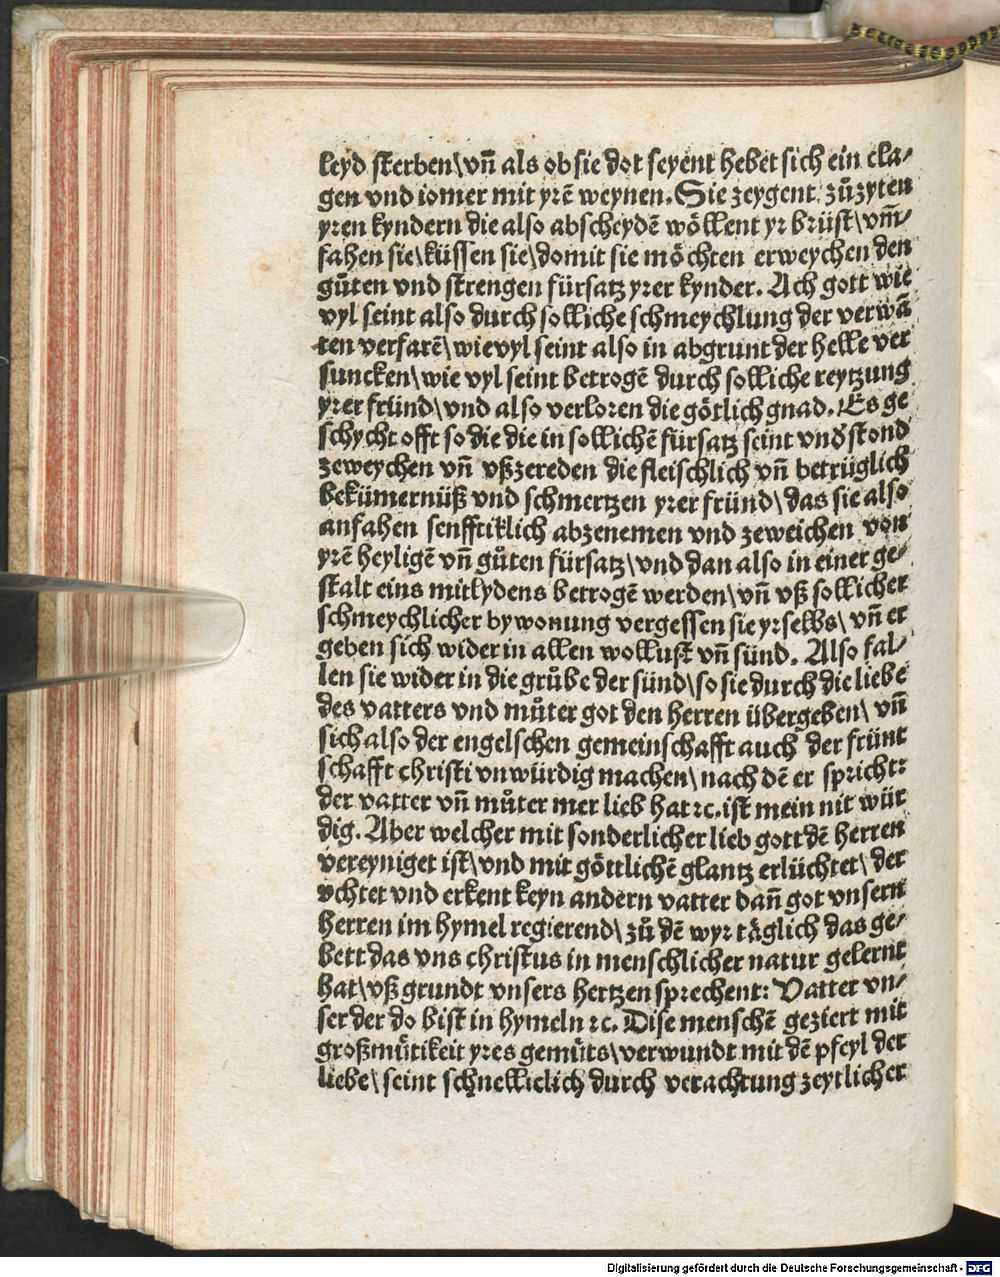 leyd sterben\vn̄ als ob sie dot seyent hebet sich ein cla⸗
gen vnd iomer mit yrē weynen. Sie zeygent zuͦzyten
yren kyndern die also abscheydē woͤllent yr brüst\vm̄⸗
fahen sie\küssen sie\domit sie moͤchten erweychen den
guͦten vnd strengen fürsatz yrer kynder. Ach gott wie
vyl seint also durch solliche schmeychlung der verwā
ten verfarē\wie vyl seint also in abgrunt der helle ver
suncken\wie vyl seint betrogē durch solliche reytzung
yrer fründ\vnd also verloren die goͤtlich gnad. Es ge
schycht offt so die die in sollichē fürsatz seint vnd̕stond
zeweychen vn̄ vßzereden die fleischlich vn̄ betrüglich
bekümernüß vnd schmertzen yrer fründ\das sie also
anfahen senfftiklich abzenemen vnd zeweichen von
yrē heyligē vn̄ guͦten fürsatz\vnd dan also in einer ge⸗
stalt eins mitlydens betrogē werden\vn̄ vß sollicher
schmeychlicher bywonung vergessen sie yr selbs\vn̄ er
geben sich wider in allen wollust vn̄ sünd. Also fal⸗
len sie wider in die gruͦbe der sünd\so sie durch die liebe
des vatters vnd muͦter got den herren übergeben\vn̄
sich also der engelschen gemeinschafft auch der frünt
schafft christi vnwürdig machen\nach dē er spricht:
der vatter vn̄ muͦter mer lieb hat ꝛc. ist mein nit wür
dig. Aber welcher mit sonderlicher lieb gott dē herren
vereyniget ist\vnd mit goͤttlichē glantz erlüchtet\der
ochtet vnd erkent keyn andern vatter dañ got vnsern
herren im hymel regierend\zuͦ dē wyr taͤglich das ge⸗
bett das vns christus in menschlicher natur gelernt
hat\vß grundt vnsers hertzen sprechent: Vatter vn⸗
ser der do bist in hymeln ꝛc. Dise menschē geziert mit
großmuͤtikeit yres gemuͤts\verwundt mit dē pfeyl der
liebe\seint schnelliclich durch verachtung zeytlicher
Digitalisierung gefördert durch die Deutsche Forschungsgemeinschaft - DFG